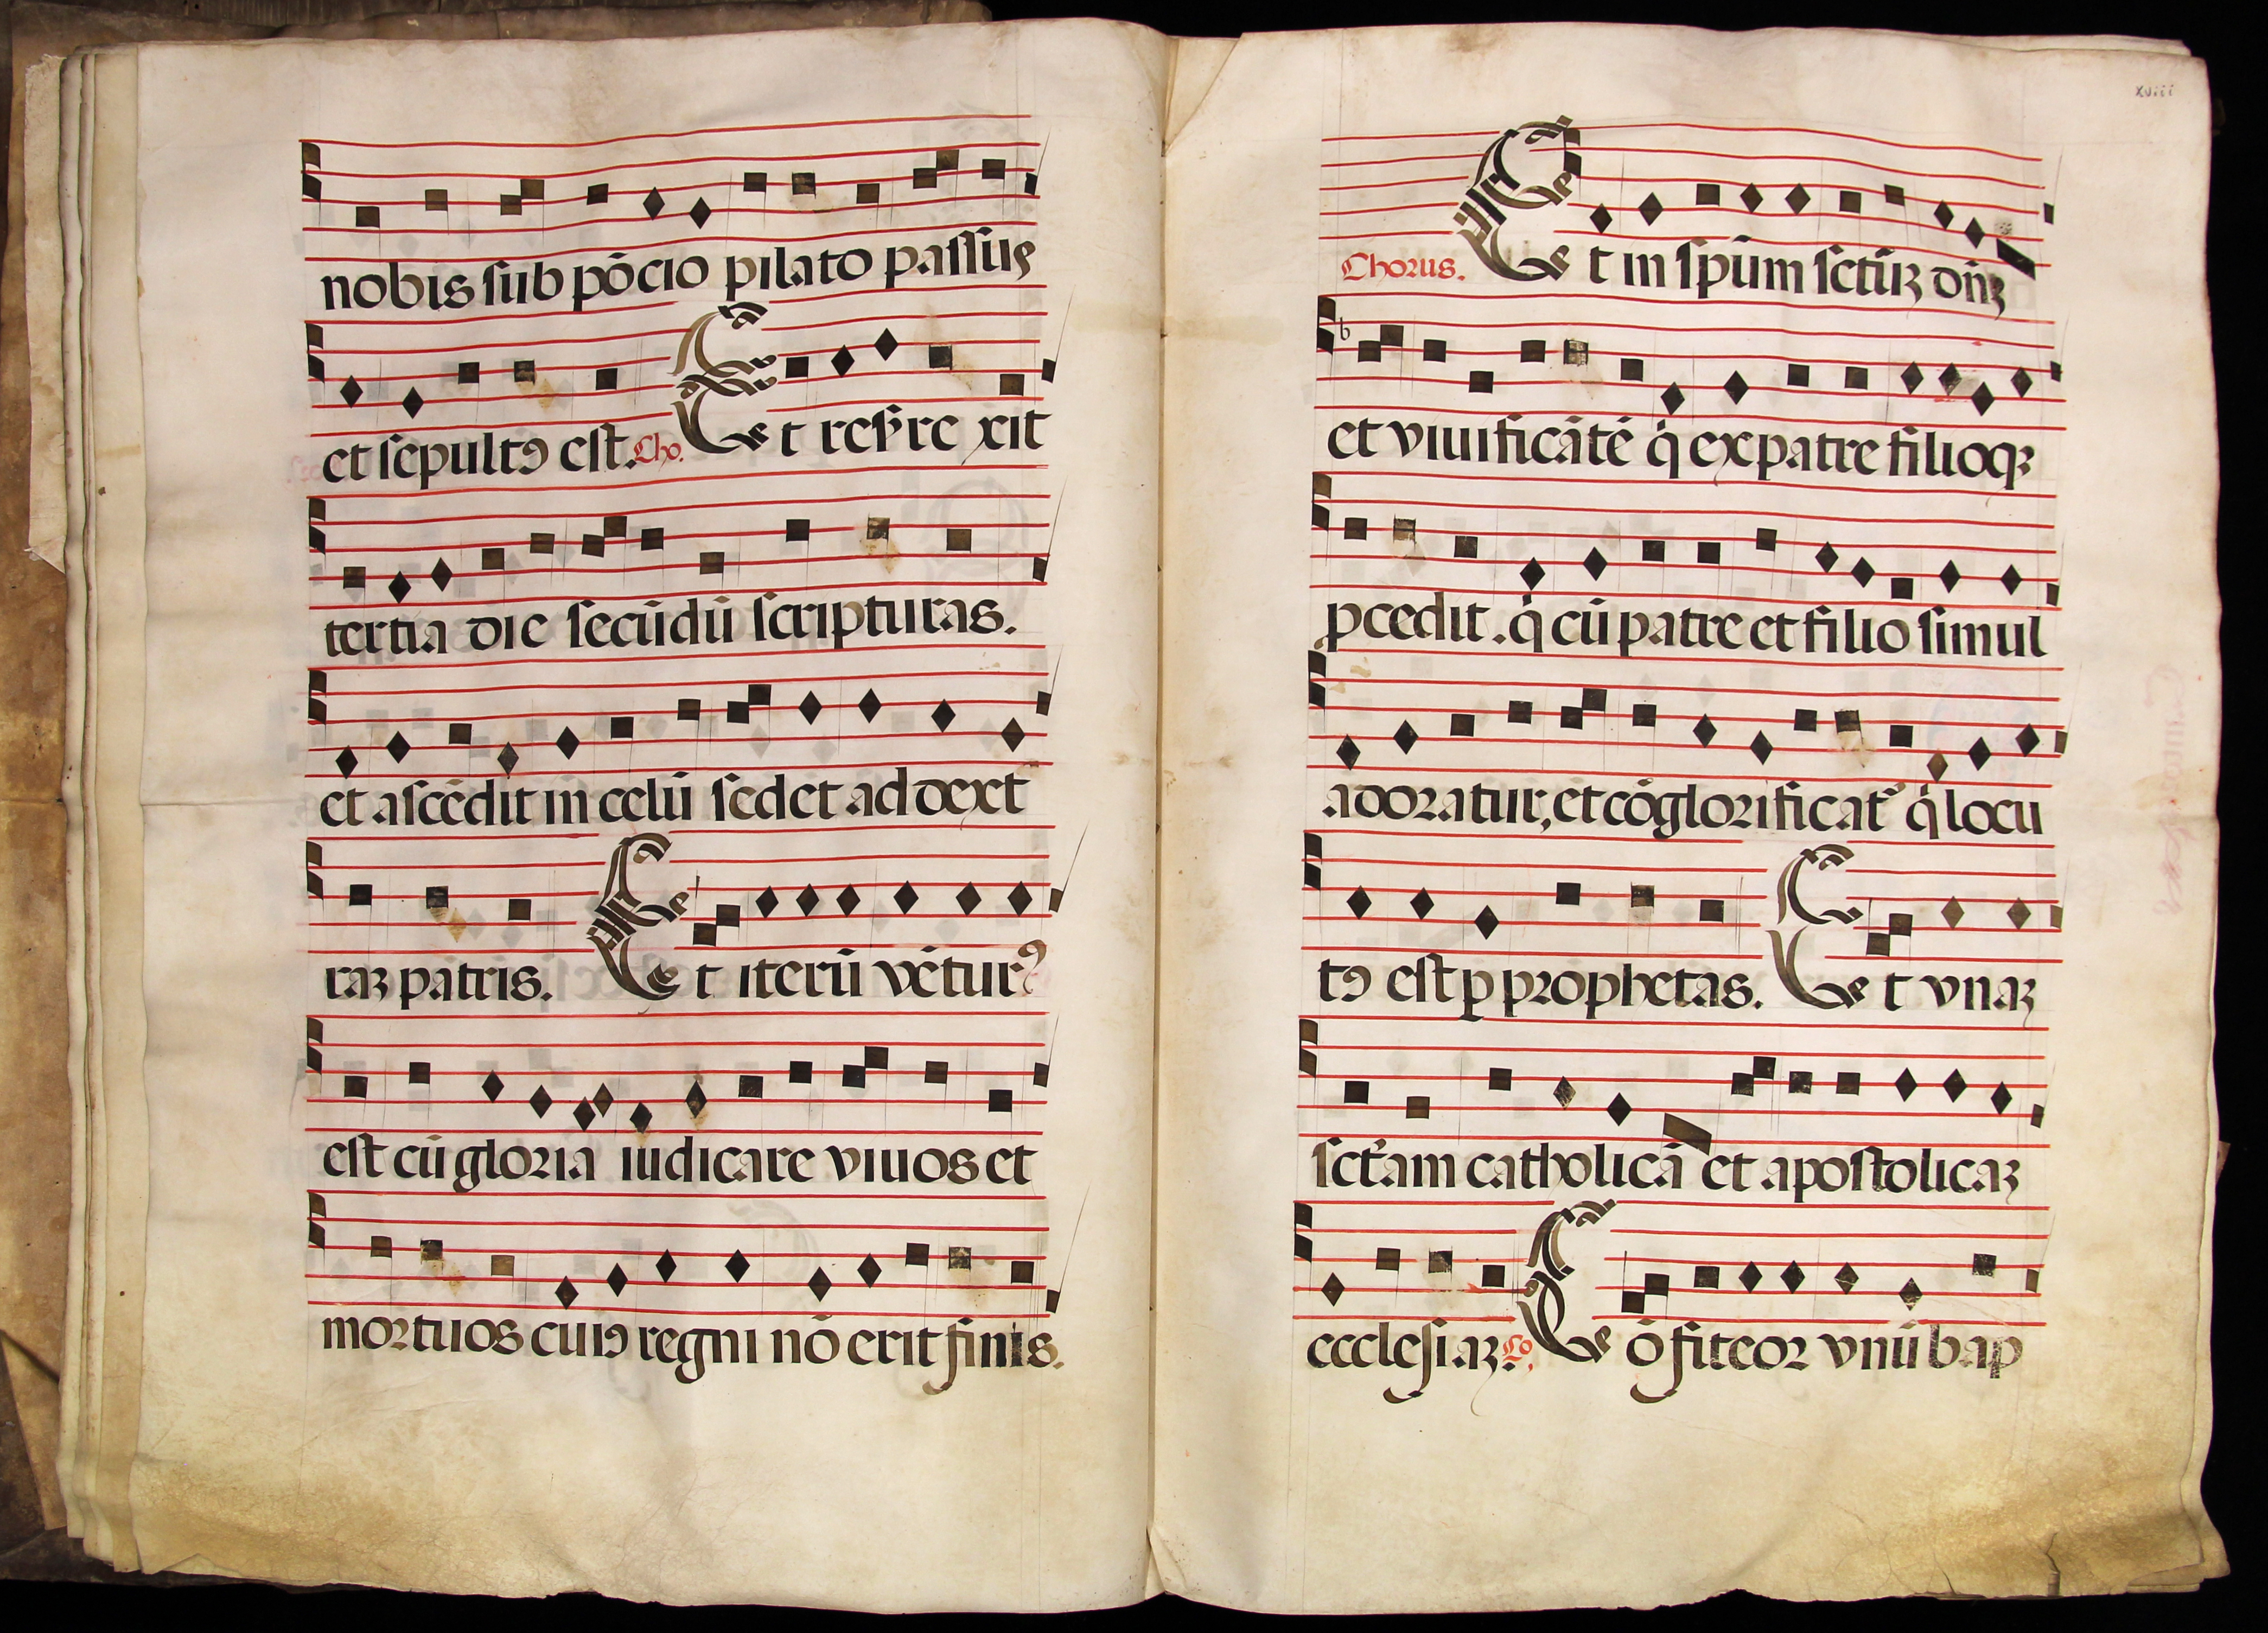 nobis sub põcio pilato passus
et sepultꝯ est. Cho. Et resr̃rexit
tertia die secũdũ scripturas.
et ascẽdit in celũ sedet ad dext
raꝫ patris. Et iterũ vẽturꝰ
est cũ gloria iudicare viuos et
mortuos cuiꝯ regni nõ erit finis.
xviii
Chorus. Et in spũm sctũꝫ dñꝫ
et viuificãtẽ q̇ ex patre filioqꝫ
ꝓcedit. q̇ cũ patre et filio simul
adoratur, et cõglorificatᷣ q̇ locu
tꝯ est ꝑ prophetas. Et vnaꝫ
sct̃am catholicã et apostolicaꝫ
ecclesiaꝫ. Co. Cõfiteor vnũ bap